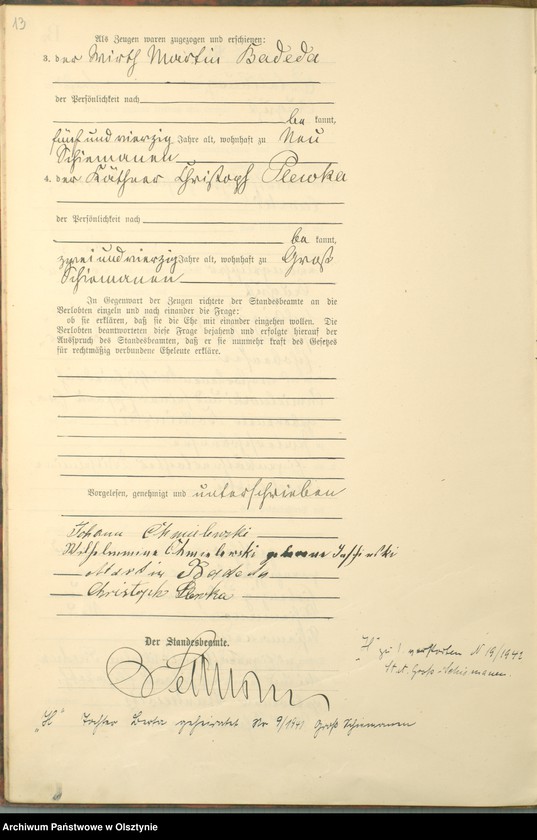 13
Als Zeugen waren zugezogen und erschienen:
3. der Wirth Martin Badeda
der Persönlichkeit nach
be kannt,
fünf und vierzig Jahre alt, wohnhaft zu Neu
Schiemanen
4. der Käthner Christoph Plewka
der Persönlichkeit nach
be kannt,
zwei und vierzig Jahre alt, wohnhaft zu Groß
Schiemanen
In Gegenwart der Zeugen richtete der Standesbeamte an die
Verlobten einzeln und nach einander die Frage:
ob sie erklären, daß sie die Ehe mit einander eingehen wollen. Die
Verlobten beantworteten diese Frage bejahend und erfolgte hierauf der
Ausspruch des Standesbeamten, daß er sie nunmehr kraft des Gesetzes
für rechtmäßig verbundene Eheleute erkläre.
Vorgelesen, genehmigt und unterschrieben
Johann Chmielewski
Wilhelmine Chmielewski geborene
Martin Badeda
Christoph Plewka
Der Standesbeamte.
"H" zu 1 verstorben N 19/1942
St.A. Groß-Schiemanen.
"H" Tochter Berta geheiratet Nr 9/1941 Groß Schiemanen
Archiwum Państwowe w Olsztynie